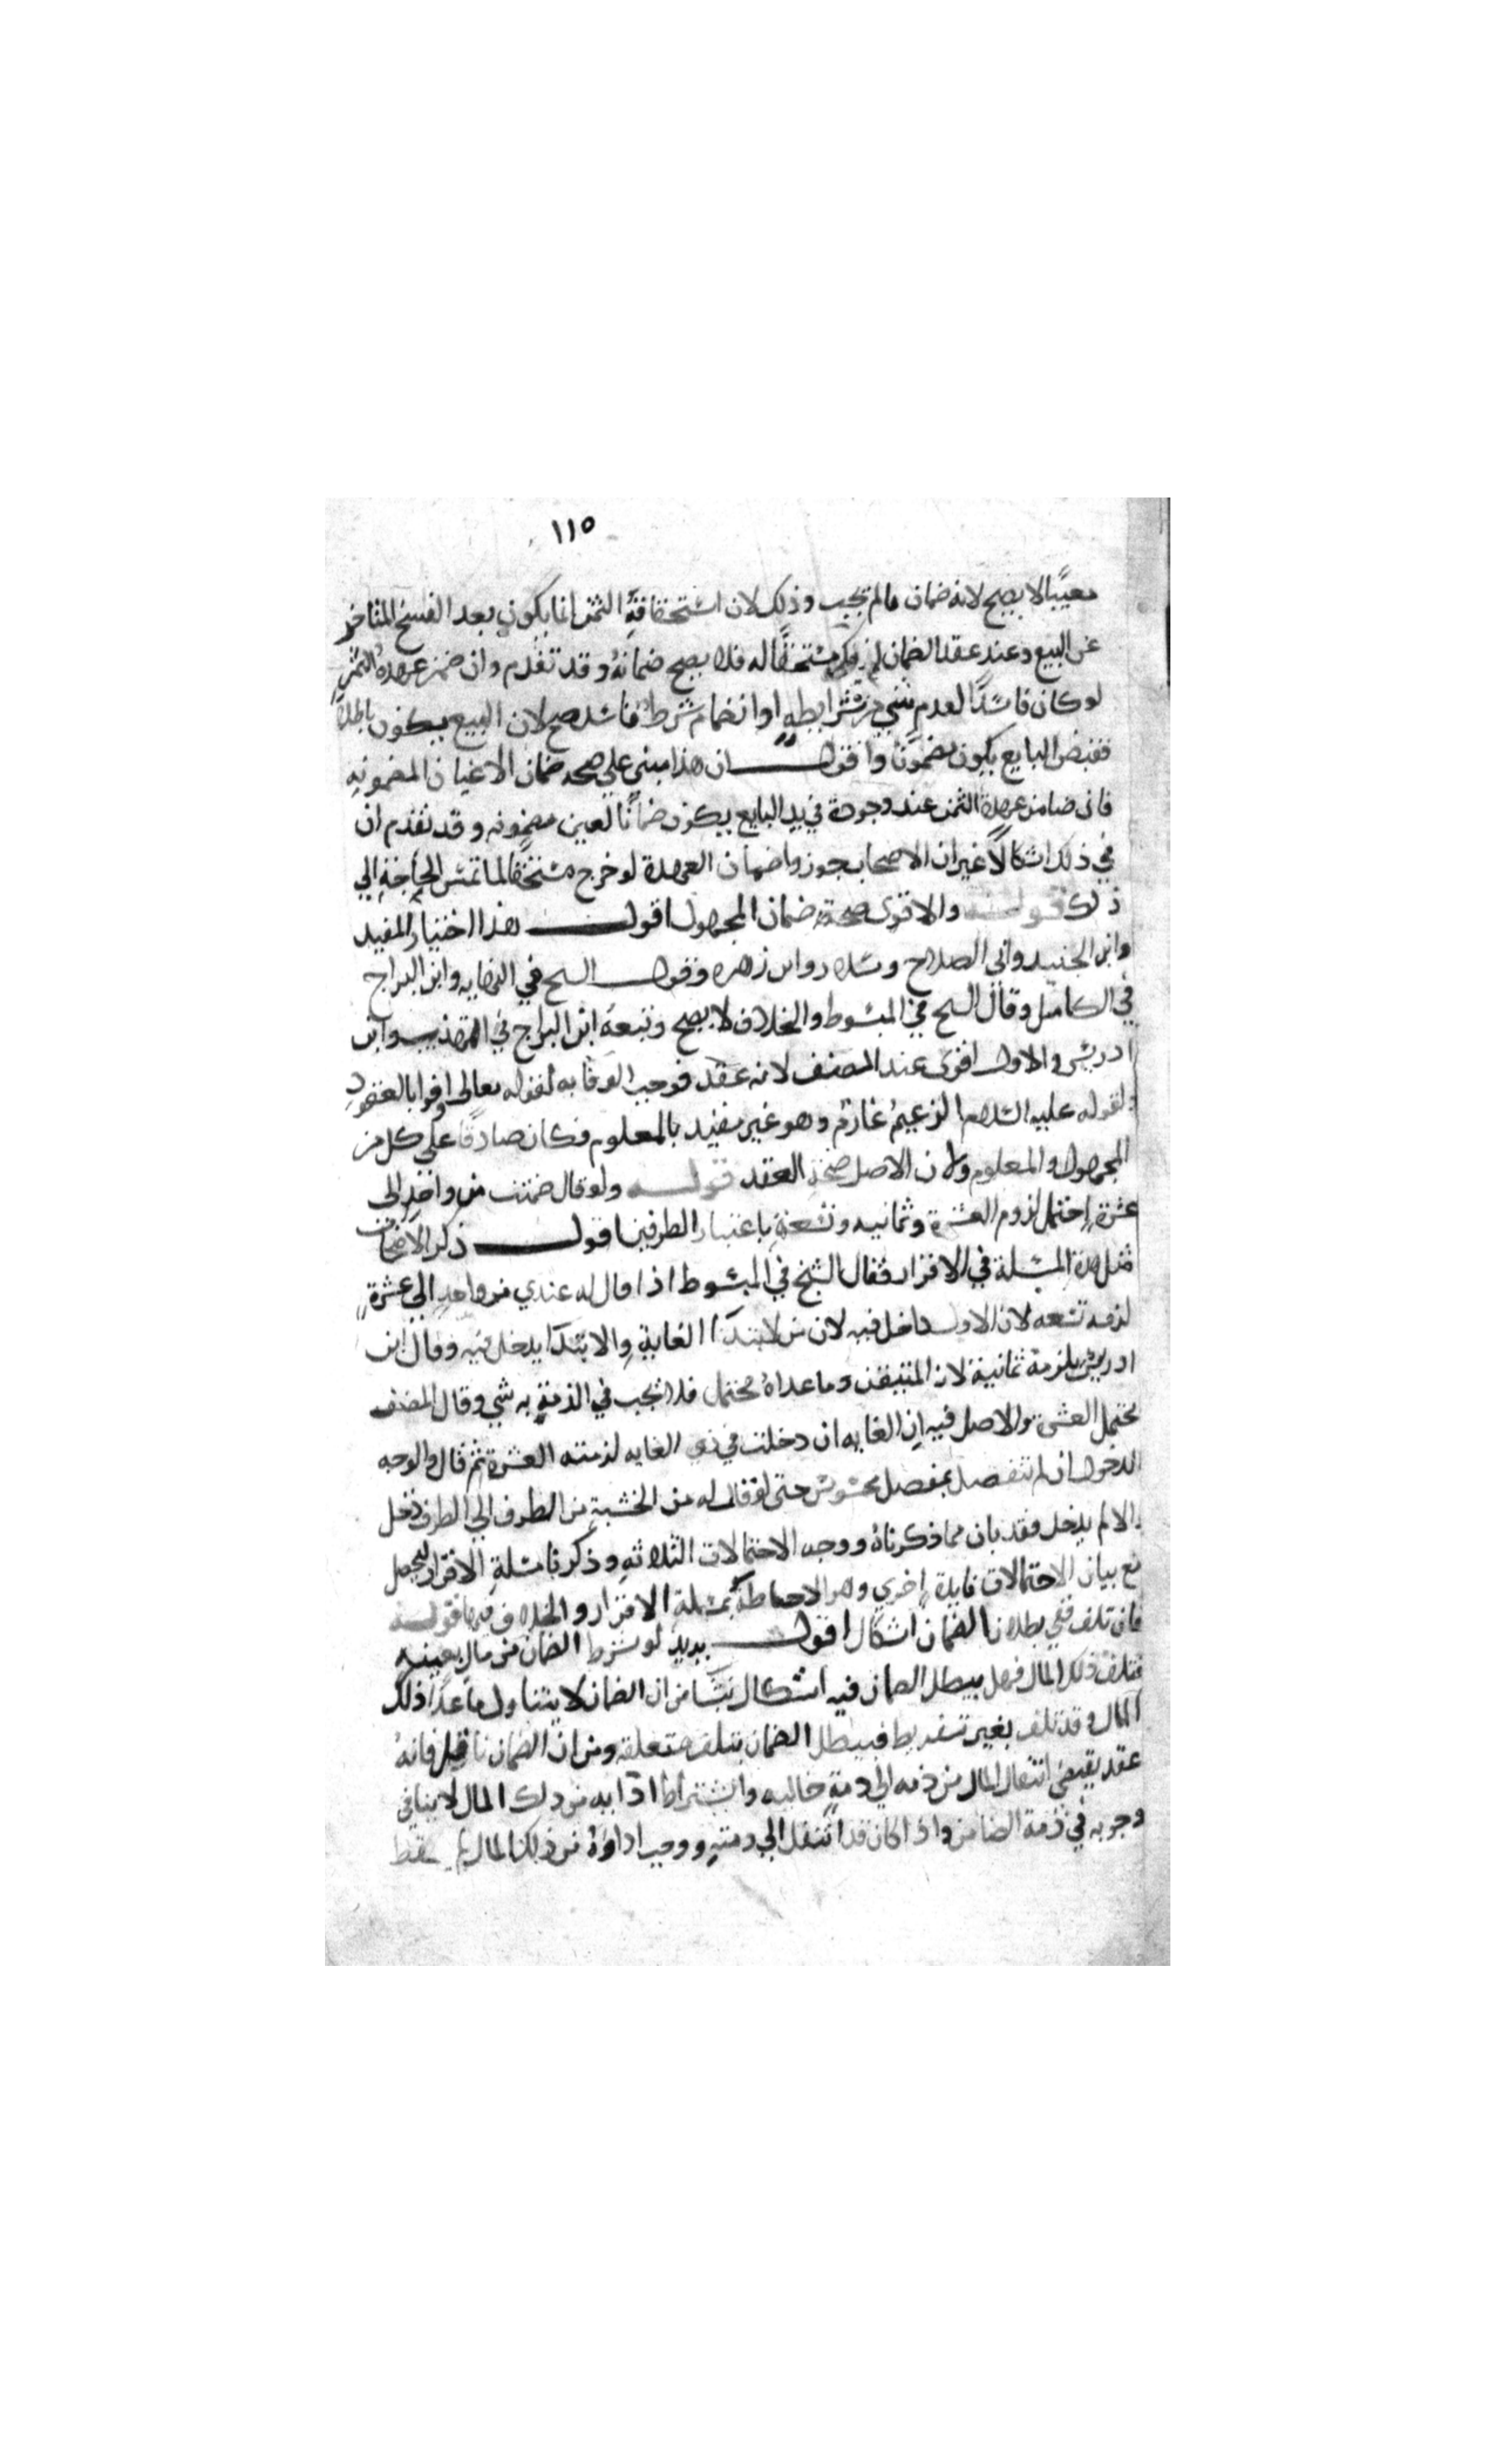 ١١٥
معيبًا لا يصح لانه ضمان مالم يجب وذلك لان استحقاقه الثمن انما يكون بعد الفسخ المتاخر
عن البيع وعند عقد الضمان لم يكن مستحقًا له فلا يصح ضمانهُ وقد تقدم وان ضمن عهدة الثمن
لو كان فاسدًا لعدم شي من شرايطه او انضمام شرط فاسد صح لان البيع يكون باطلا
فقبض البايع يكون مضمونا واقول ان هذا مبني على صحه ضمان الاعيان المضمونه
فان ضامن عهدة الثمن عند وجوده في يد البايع يكون ضمانًا لعين مضمونه وقد تقدم ان
في ذلك اشكالًا غير ان الاصحاب جوزوا ضمان العهدة لو خرج مستحقا لما تمس الحاجة الي
ذلك قوله والاقوى صحة ضمان المجهول اقول هذا اختيار المفيد
وابن الجنيد وابي الصلاح وسلار وابن زهره وقول الشيخ في النهايه وابن البراج
في الكامل وقال الشيخ في المبسوط والخلاف لا يصح وتبعهُ ابن البراج في المهذب وابن
ادريس والاول اقوى عند المصنف لانه عقد فوجب الوفا به لقوله تعالى اوفوا بالعقود
ولقوله عليه السلام الزعيم غارم وهو غير مقيد بالمعلوم فكان صادقًا على كل من
المجهول والمعلوم ولان الاصل صحة العقد قوله ولو قال ضمنت من واحد الى
عشرة احتمل لزوم العشرة وثمانيه وتسعة باعتبار الطرفين اقول ذكر الاصحاب
مثل هذه المسلة في الاقرار فقال الشيخ في المبسوط اذا قال له عندي من واحد الي عشرة
لزمه تسعه لان الاول داخل فيه لان من لابتدا الغاية والابتدا يدخل فيه وقال ابن
ادريس يلزمه ثمانية لان المتيقن وما عداهُ محتمل فلا يجب في الذمة به شي وقال المصنف
يحتمل العشرة والاصل فيه ان الغايه ان دخلت في ذي الغايه لزمته العشرة ثم قال والوجه
الدخول ان لم تنفصل بمفصل محسوس حتى لو قال له من الخشبة من الطرف الي الطرف دخل
والا لم يدخل فقد بان مما ذكرناهُ ووجه الاحتمالات الثلاثه وذكرنا مسلة الاقرار ليحصل
مع بيان الاحتمالات فايدة اخري وهو الاحاطة بمسلة الاقرار والخلاف فيها قوله
فان تلف ففي بطلان الضمان اشكال اقول يريد لو شرط الضمان من مال بعينه
فتلف ذلك المال فهل يبطل الضمان فيه اشكال ينشا من ان الضمان لا يتناول ما عدا ذلك
المال وقد تلف بغير تفريط فيبطل الضمان بتلف متعلقه ومن ان الضمان ناقل فانهُ
عقد يقتضي انتقال المال من ذمه الي ذمة خاليه واشتراط ادايه من ذلك المال لا ينافي
وجوبه في ذمة الضامن واذا كان قد انتقل الي ذمته ووجب اداوهُ من ذلك المال لم يسقط